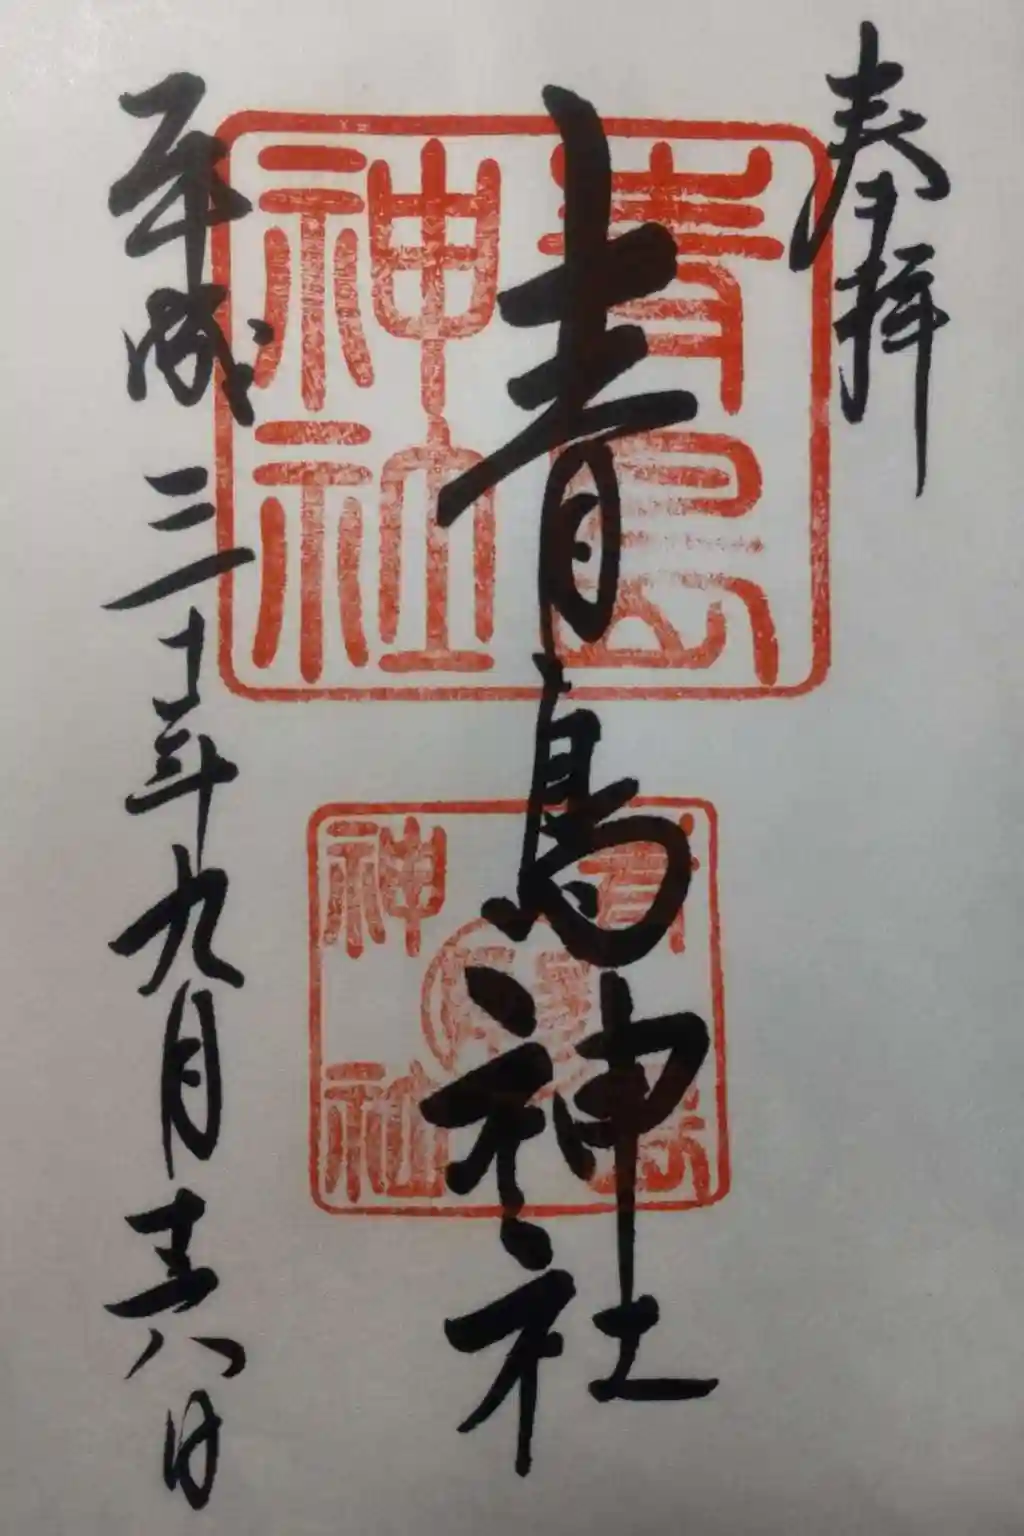 奉拝
青島神社
平成三十年九月 日
青島
神社
青島
神社